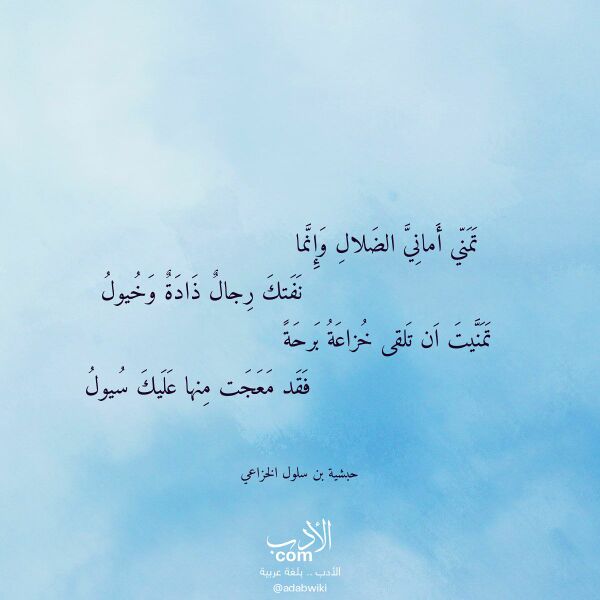 تَمَنّي أَمانِيَّ الضَلالِ وَإِنَّما
نَفَتكَ رِجالٌ ذَادَةٌ وَخُيولُ
تَمَنَّيتَ اَن تَلقى خُزاعَةُ بَرحَةً
فَقَد مَعَجَت مِنها عَلَيكَ سُيولُ
حبشية بن سلول الخزاعي
الأدب
com
الأدب .. بلغة عربية
@adabwiki